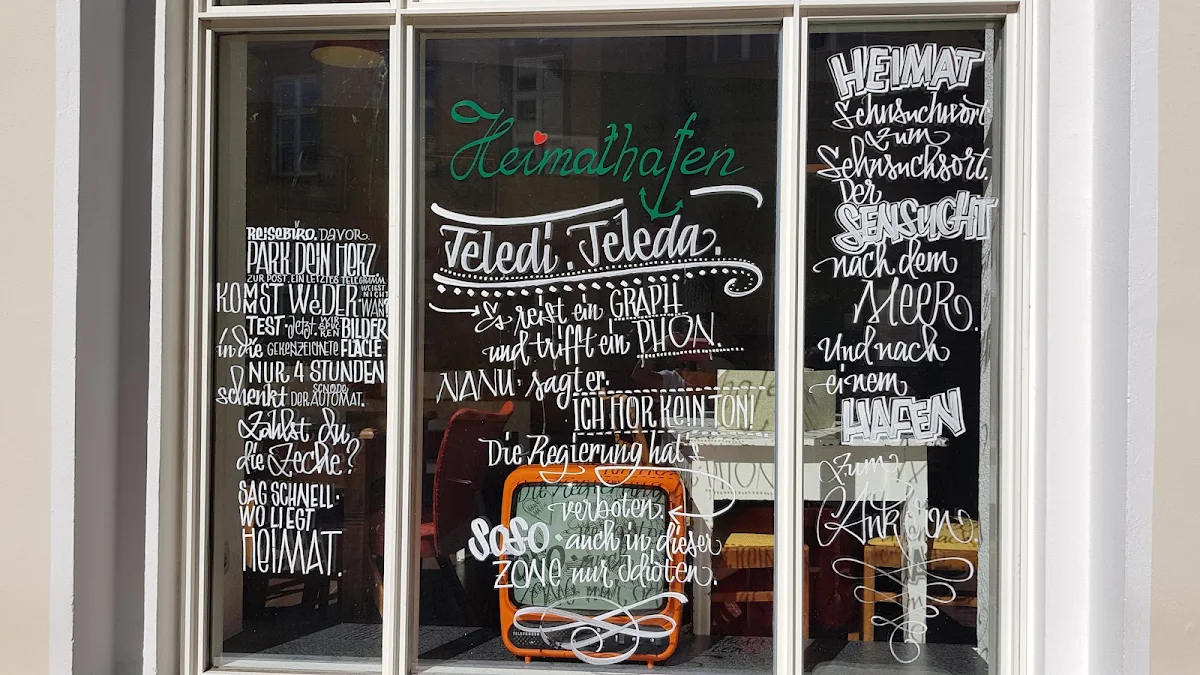 REISEBÜRO. DAVOR.
PARK DEIN HERZ
ZUR POST. EIN LETZTES TELEGRAMM.
KOMST WEDER WEISST NICHT WAN?
TEST. Jetzt. BILDER
in die GEKENZEICHNETE FLÄCHE
NUR 4 STUNDEN
schenkt DER SCHÖDE AUTOMAT.
Zahlst du
die Zeche?
SAG SCHNELL.
WO LIEGT
HEIMAT.
Heimathafen
Teledi. Teleda.
Es reist ein GRAPH
und trifft ein PHON.
NANU. sagt er.
ICH HÖR KEIN TON!
Die Regierung hat's
verboten.
SOSO. auch in dieser
ZONE nur Idioten.
TELEFUNKEN
HEIMAT
Sehnsuchwort
zum
Sehnsucksort.
Der
SENSUCHT
nach dem
MEER.
Und nach
einem
HAFEN
zum
Ankern.